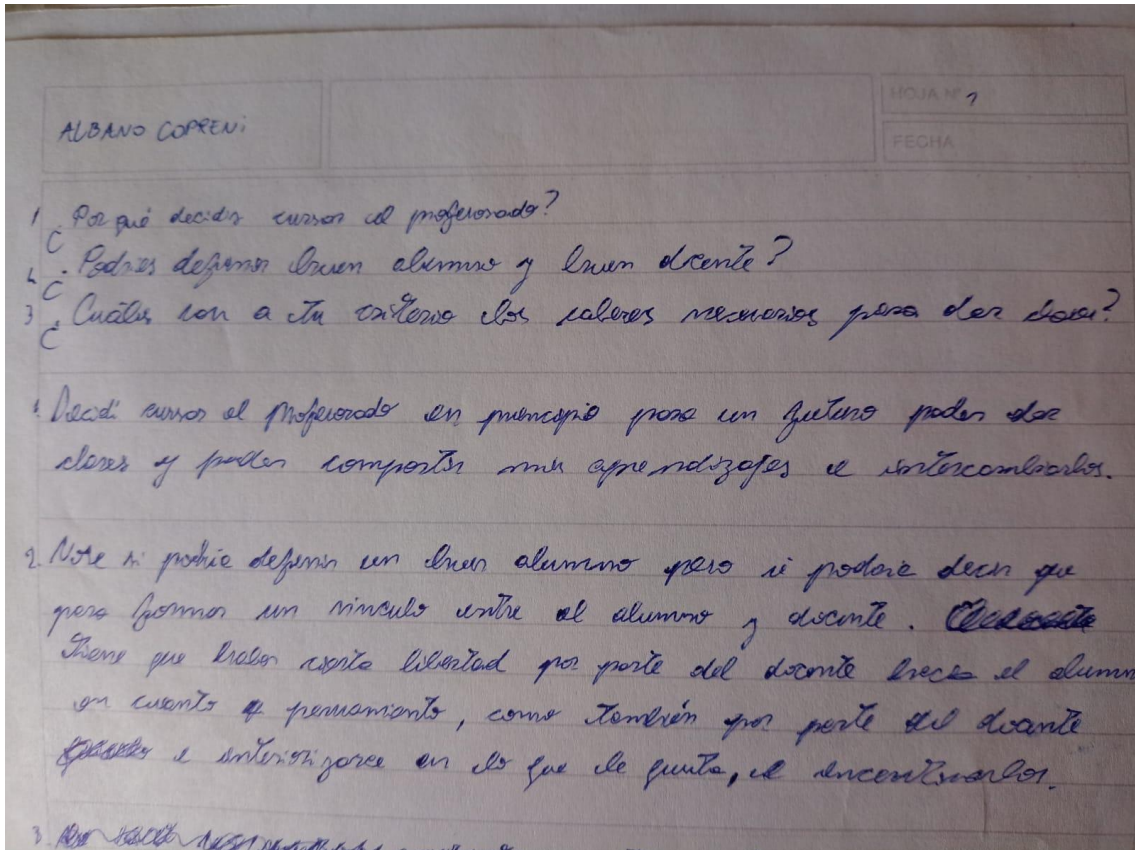 ALBANO COPRENI
HOJA Nº 1
FECHA
1 ¿Por qué decidis cursar el profesorado?
2 ¿Podrías definir buen alumno y buen docente?
3 ¿Cuáles son a tu criterio los saberes necesarios para dar clase?
1. Decidí cursar el Profesorado en principio para un futuro poder dar
clases y poder compartir mis aprendizajes e intercambiarlos.
2. No se si podria definir un buen alumno pero si podria decir que
para formar un vinculo entre el alumno y docente.
Tiene que haber cierta libertad por parte del docente hacia el alumn
en cuanto a pensamiento, como también por parte del docente
e interiorizarce en lo que le gusta, e incentivarlos.
3.